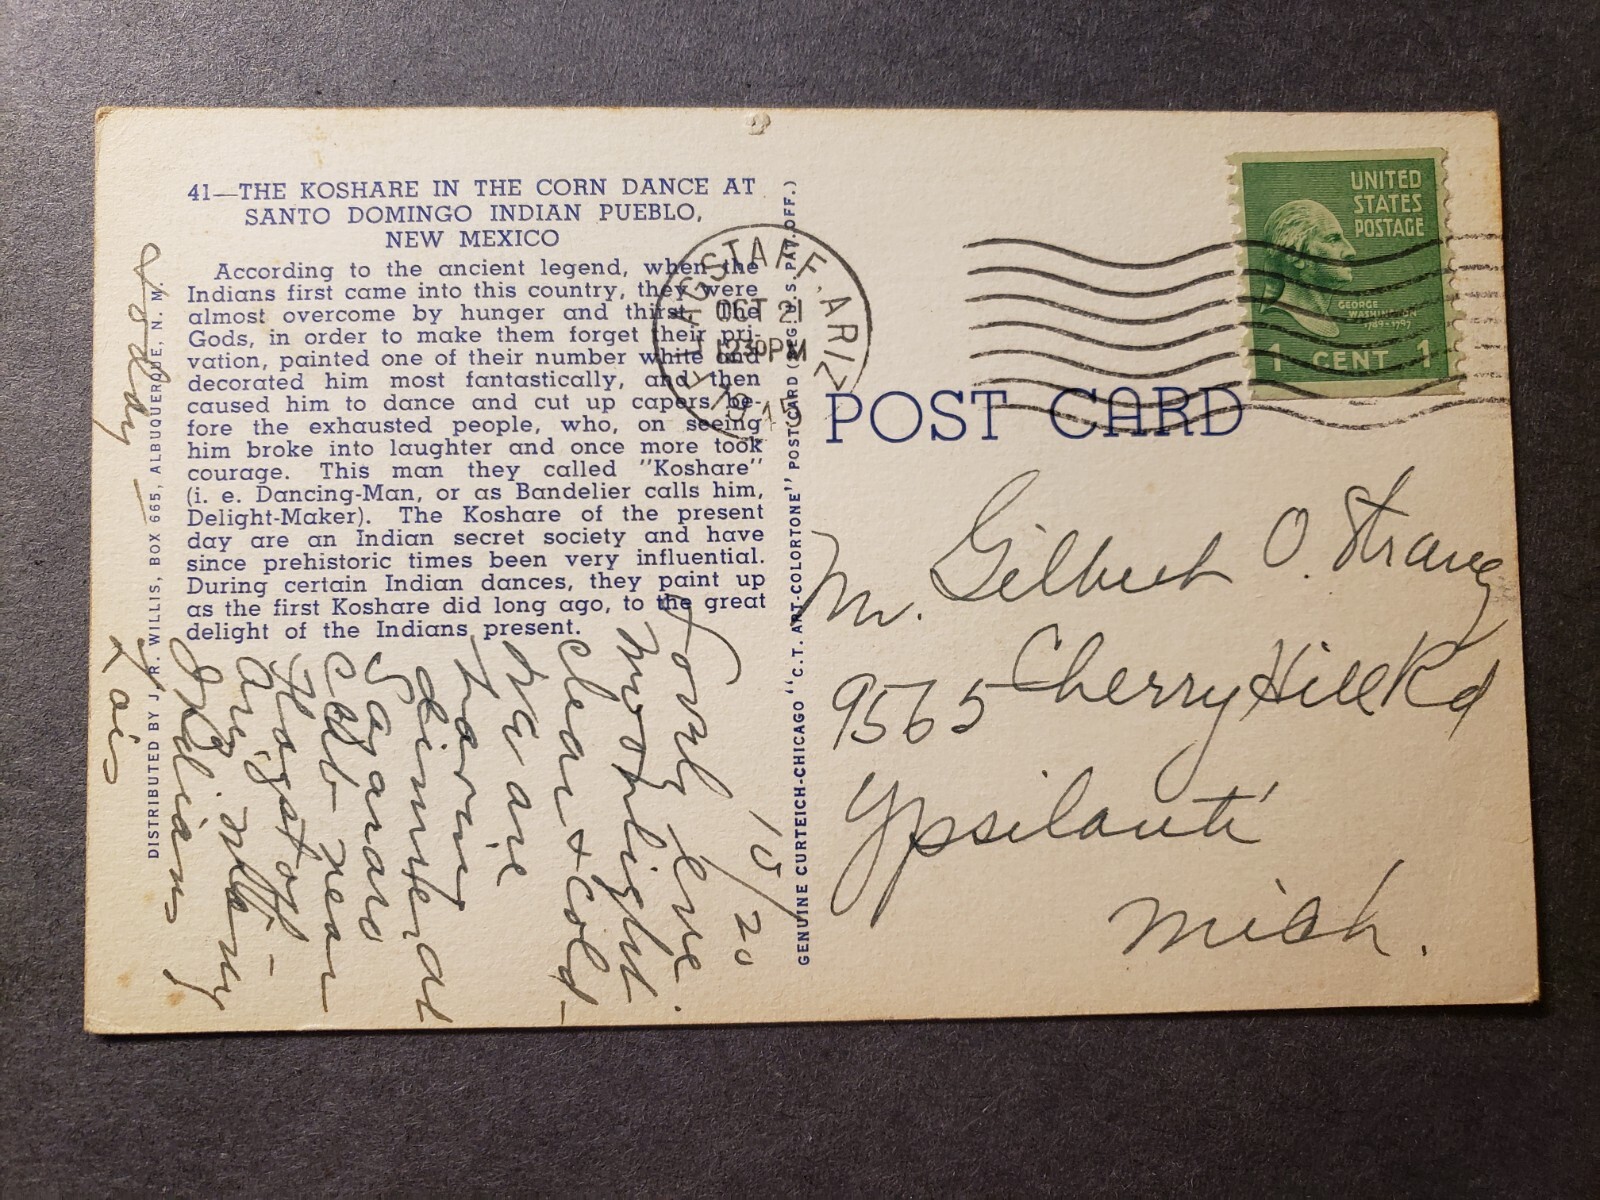 41—THE KOSHARE IN THE CORN DANCE AT
SANTO DOMINGO INDIAN PUEBLO,
NEW MEXICO
According to the ancient legend, when the
Indians first came into this country, they were
almost overcome by hunger and thirst. The
Gods, in order to make them forget their pri-
vation, painted one of their number white and
decorated him most fantastically, and then
caused him to dance and cut up capers be-
fore the exhausted people, who, on seeing
him broke into laughter and once more took
courage. This man they called "Koshare"
(i. e. Dancing-Man, or as Bandelier calls him,
Delight-Maker). The Koshare of the present
day are an Indian secret society and have
since prehistoric times been very influential.
During certain Indian dances, they paint up
as the first Koshare did long ago, to the great
delight of the Indians present.
DISTRIBUTED BY J. R. WILLIS, BOX 665, ALBUQUERQUE, N. M.
GENUINE CURTEICH-CHICAGO "C.T. ART-COLORTONE" POST CARD (REG. U.S. PAT. OFF.)
10/20
eve.
light
clear & cold -
We are
having
dinner at
club near
Flagstaff -
Ariz.
Indians
today -
Lois
FLAGSTAFF, ARIZ.
OCT 21
12 30 PM
UNITED
STATES
POSTAGE
GEORGE
WASHINGTON
1789-1797
1 CENT 1
POST CARD
Mr. Gilbert O. Strang
9565 Cherry Hill Rd
Ypsilanti
Mich.